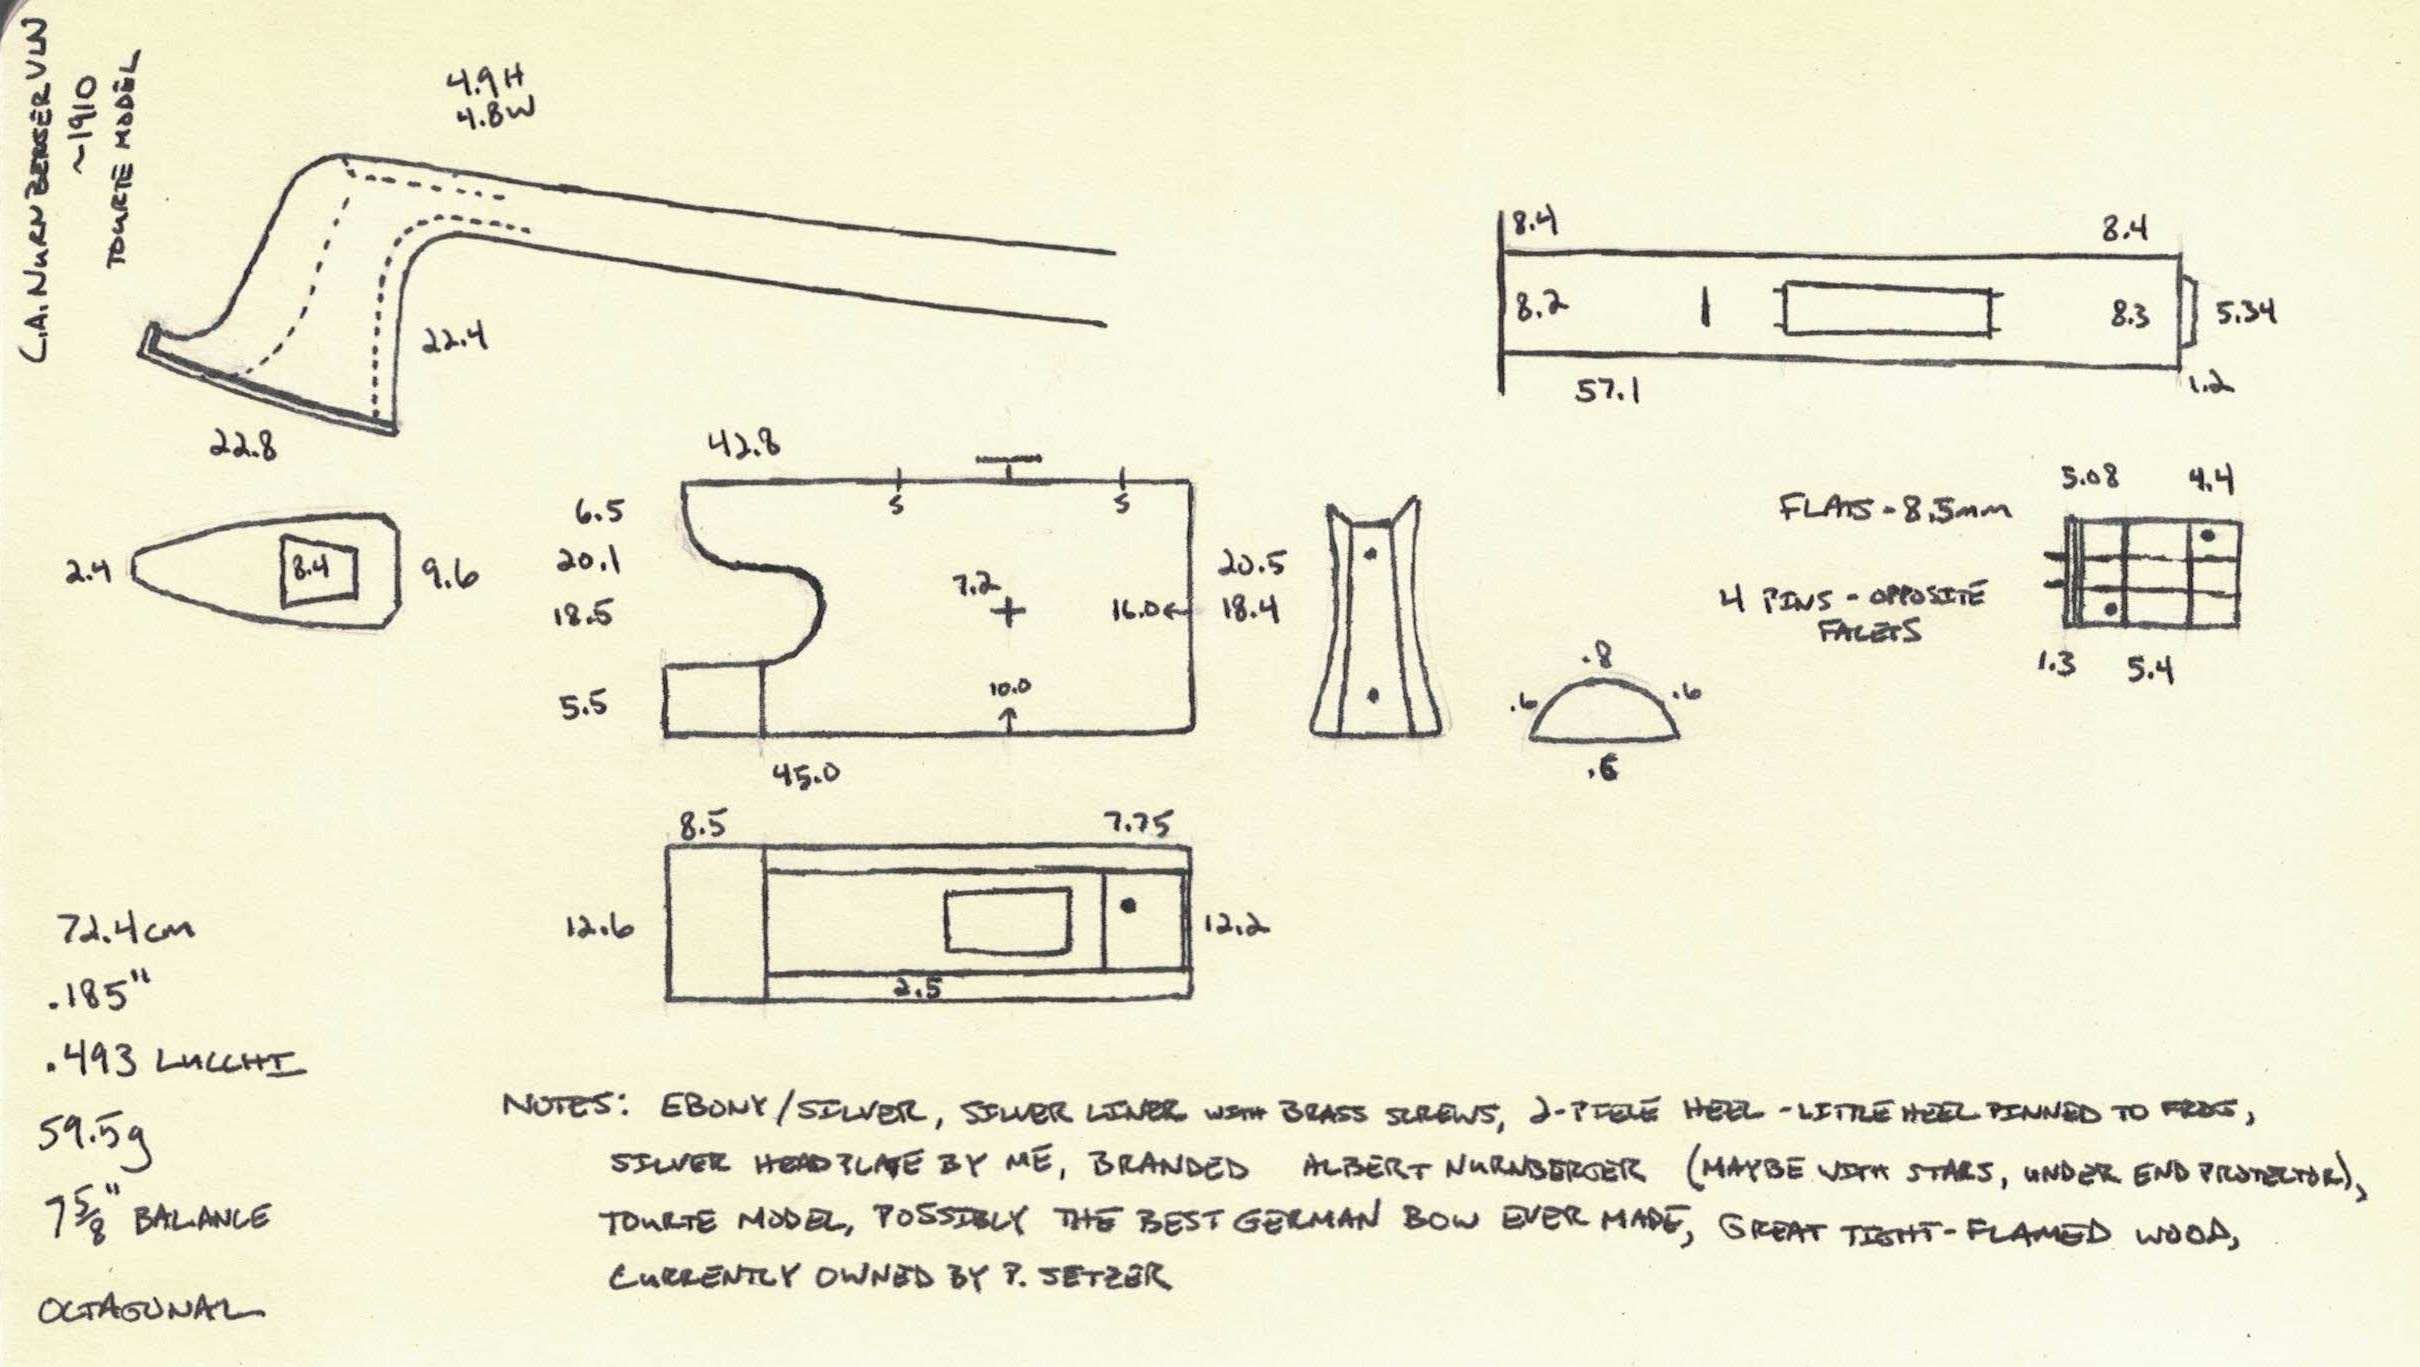 C.A. NURNBERGER VLN
~1910
TOURTE MODEL
4.9H
4.8W
22.4
22.8
8.4
8.4
8.2
8.3
5.34
57.1
1.2
42.8
5
5
6.5
20.1
18.5
5.5
7.2
16.0
20.5
18.4
10.0
45.0
2.4
8.4
9.6
FLATS - 8.5mm
4 PINS - OPPOSITE
FACETS
5.08
4.4
1.3
5.4
.8
.6
.6
8.5
7.75
12.6
12.2
2.5
72.4cm
.185"
.493 LUCCHI
59.5g
7 5/8" BALANCE
OCTAGONAL
NOTES: EBONY/SILVER, SILVER LINER WITH BRASS SCREWS, 2-PIECE HEEL - LITTLE HEEL PINNED TO FROG,
SILVER HEADPLATE BY ME, BRANDED ALBERT NURNBERGER (MAYBE WITH STARS, UNDER END PROTECTOR),
TOURTE MODEL, POSSIBLY THE BEST GERMAN BOW EVER MADE, GREAT TIGHT-FLAMED WOOD,
CURRENTLY OWNED BY P. SETZER